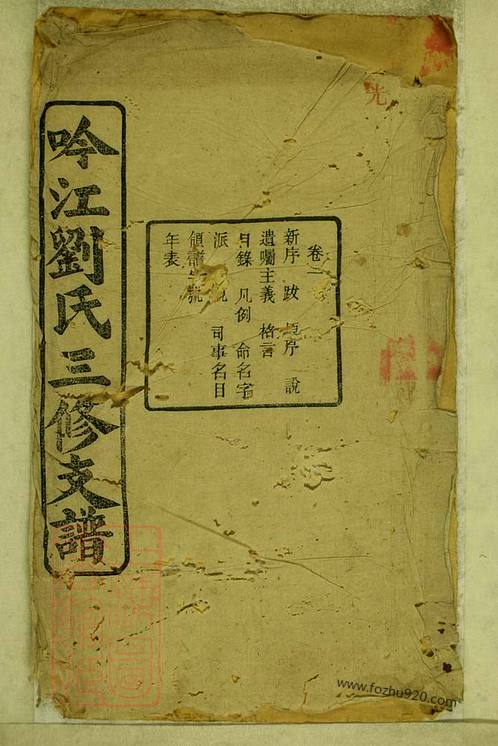 吟江劉氏三修支譜
卷一
新序 跋 序 說
遺囑主義 格言
目錄 凡例 命名字
派 司事名目
領譜字號
年表
光
www.fozhu920.com